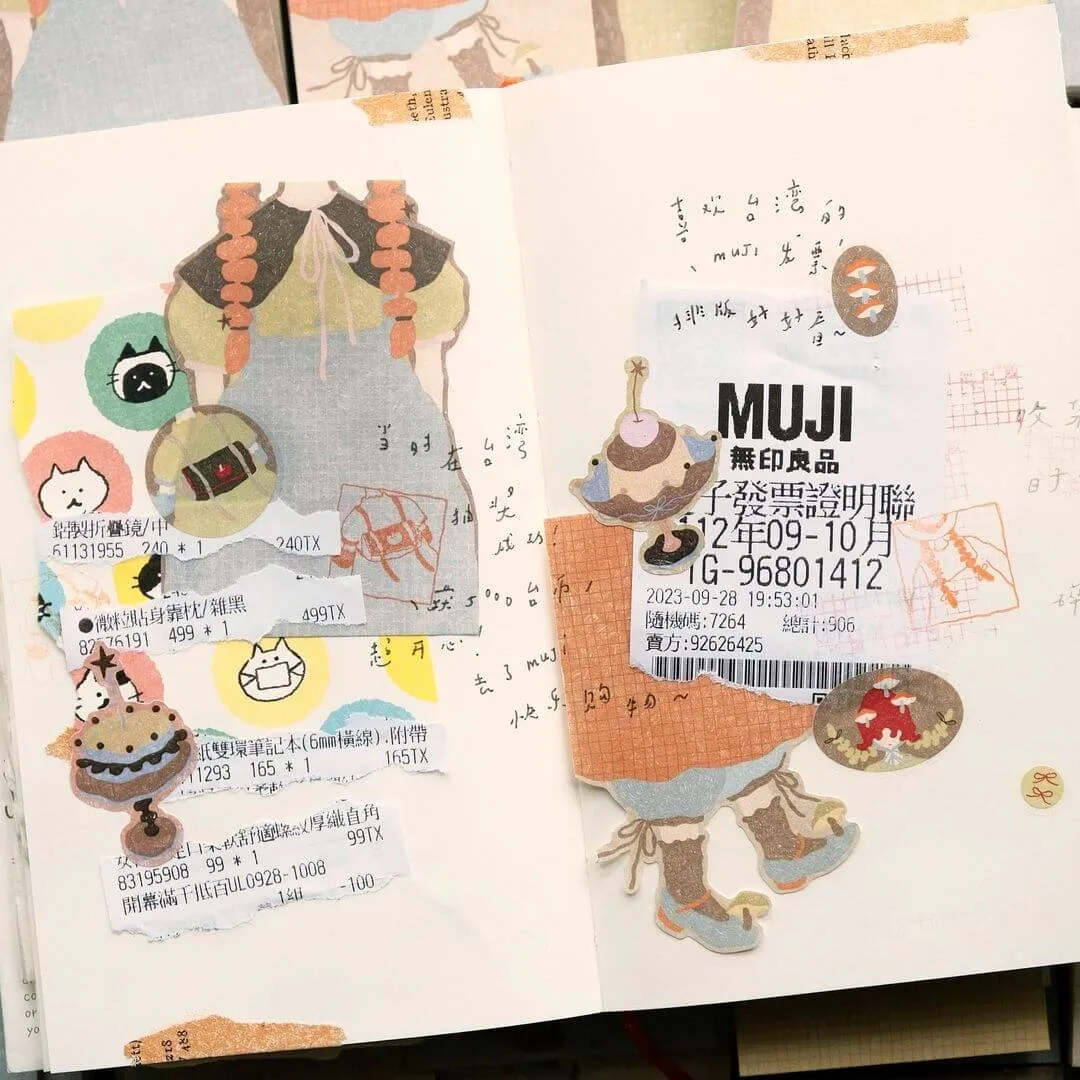 鋁製折疊鏡/中
61131955 240 * 1 240TX
●微粒貼身靠枕/雜黑
82576191 499 * 1 499TX
紙雙環筆記本(6mm橫線).附帶
11293 165 * 1 165TX
舒適螺紋/厚織直角
83195908 99 * 1 99TX
開幕滿千抵百UL0928-1008
1組 -100
当时在台湾
抽奖成功!
获5000台币!
超开心.
去了muji
快乐购物~
喜欢台湾的
muji 发票,
排版好好看~
MUJI
無印良品
子發票證明聯
112年09-10月
TG-96801412
2023-09-28 19:53:01
隨機碼:7264 總計:906
賣方:92626425